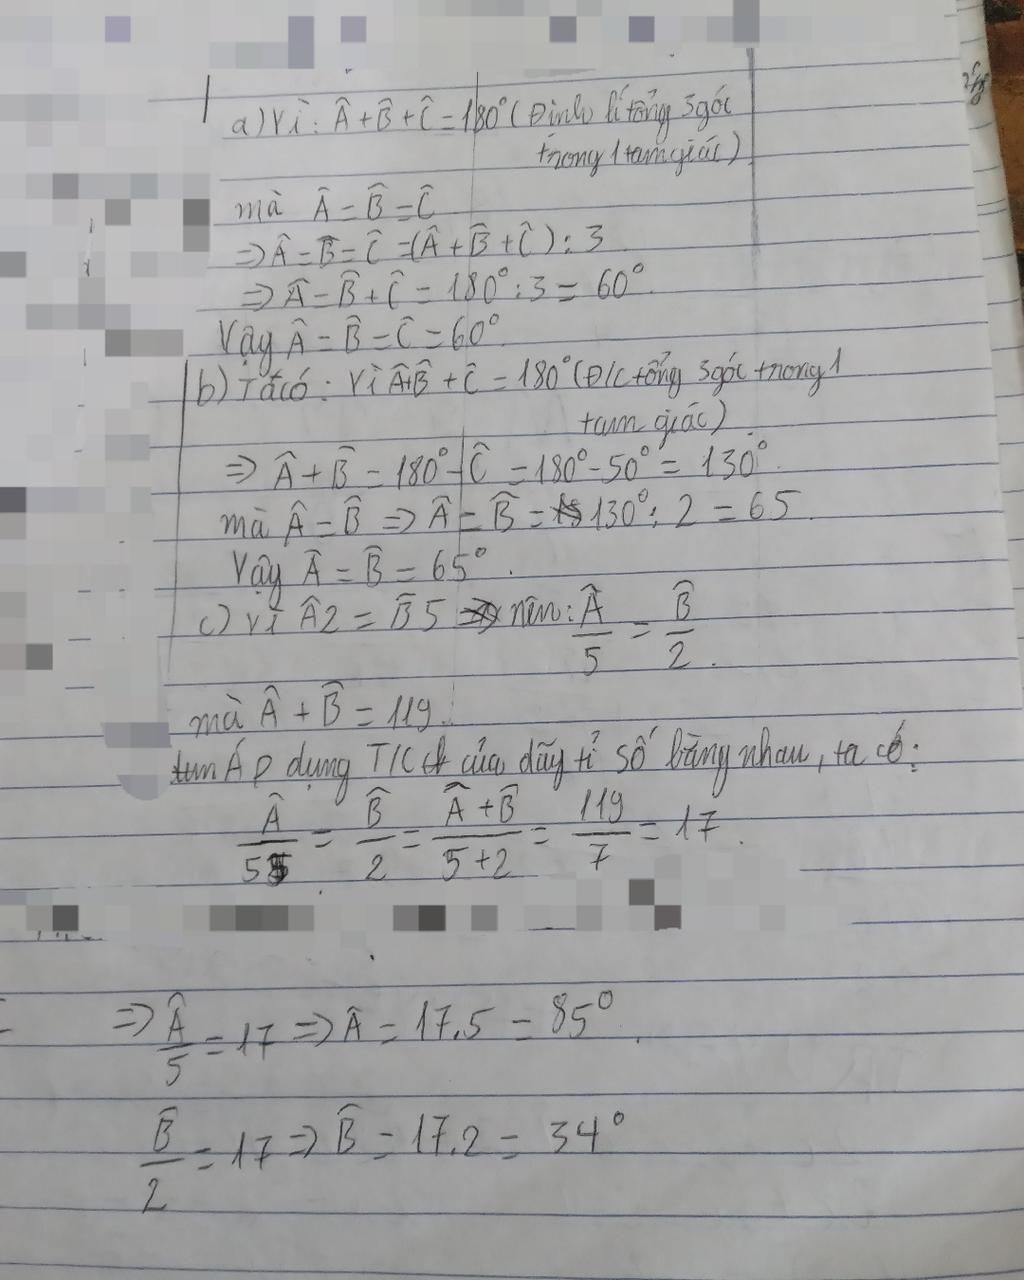 a) Vì: Â + B̂ + Ĉ = 180° (Định lí tổng 3 góc
trong 1 tam giác)
mà Â = B̂ = Ĉ
=> Â = B̂ = Ĉ = (Â + B̂ + Ĉ) : 3
=> Â = B̂ + Ĉ = 180° : 3 = 60°.
Vậy Â = B̂ = Ĉ = 60°
b) Ta có: Vì Â+B̂ + Ĉ = 180° (Đ/c tổng 3 góc trong 1
tam giác)
=> Â + B̂ = 180° - Ĉ = 180° - 50° = 130°.
mà Â = B̂ => Â = B̂ = 130° : 2 = 65.
Vậy Â = B̂ = 65°.
c) Vì Â2 = B̂5 nên: Â/5 = B̂/2.
mà Â + B̂ = 119.
Áp dụng T/C của dãy tỉ số bằng nhau, ta có:
Â/5 = B̂/2 = (Â + B̂)/(5+2) = 119/7 = 17.
=> Â/5 = 17 => Â = 17.5 = 85°.
B̂/2 = 17 => B̂ = 17.2 = 34°